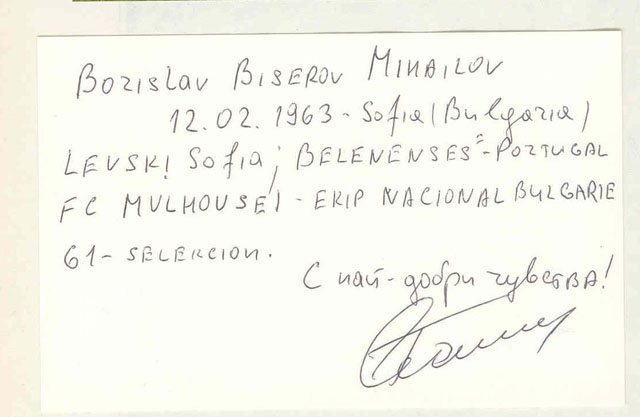 Borislav Biserov Mihailov
12.02.1963 - Sofia (Bulgaria)
LEVSKI Sofia; BELENENSES" - PORTUGAL
FC MULHOUSEI - EKIP NACIONAL BULGARIE
61 - SELERCION.
С най-добри чувства!